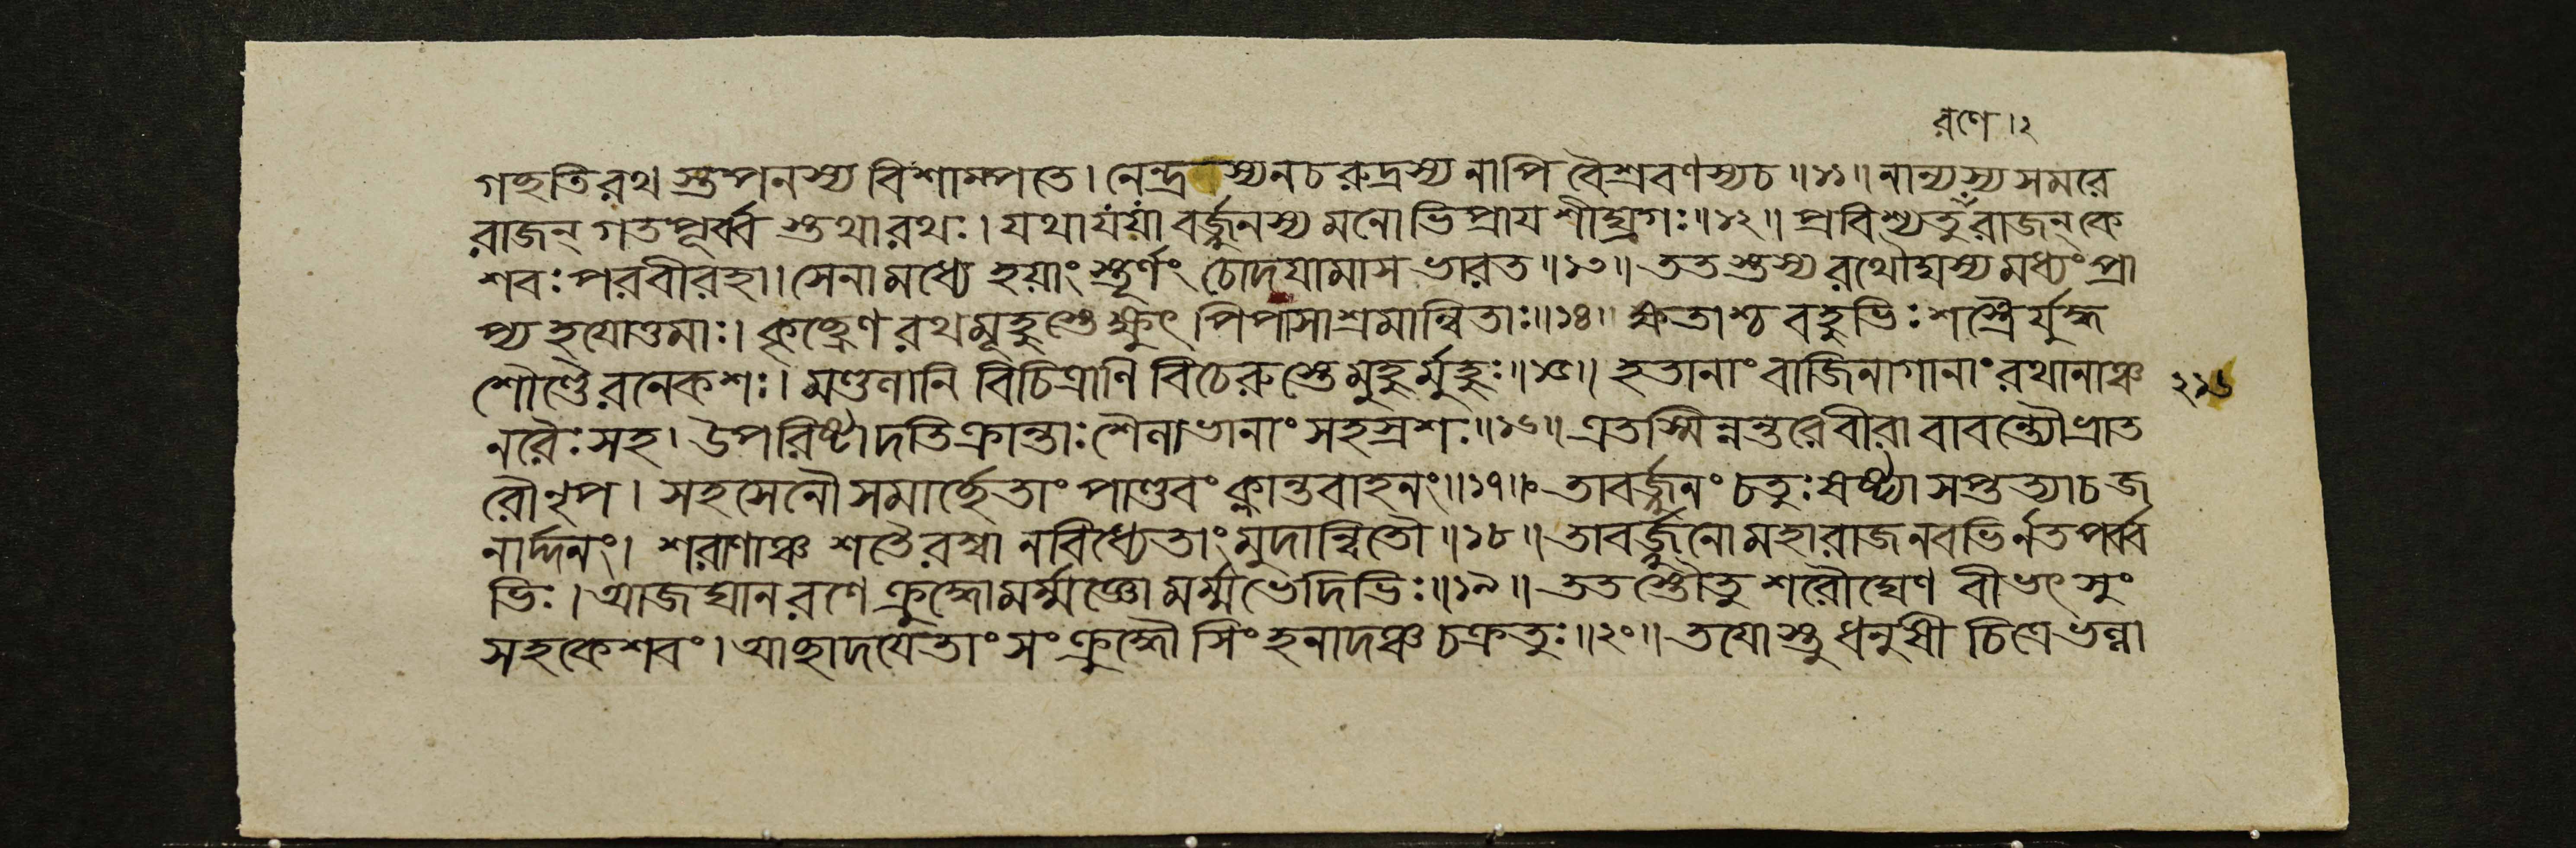 রণে।২
গচ্ছতিরথস্তপনস্য বিশাম্পতে। নেন্দ্রস্যনচরুদ্রস্য নাপি বৈশ্রবণস্যচ॥১১॥ নান্যস্য সমরে
রাজন্ গতপূর্ব্ব স্তথারথঃ। যথাযয়া বর্জ্জুনস্য মনোভিপ্রায়শীঘ্রগঃ॥১২॥ প্রবিশ্যতুরাজন্ কে
শবঃপরবীরহা। সেনামধ্যে হয়াংস্তূর্ণং চোদয়ামাস ভারত॥১৩॥ ততস্তস্য রথৌঘস্য মধ্যংপ্রা
প্য হয়োত্তমাঃ। কৃচ্ছ্রেণ রথমূহুস্তেক্ষুৎপিপাসাশ্রমান্বিতাঃ॥১৪॥ ক্ষতাশ্চ বহুভিঃ শস্ত্রৈর্যুদ্ধ
শৌণ্ডৈরনেকশঃ। মণ্ডলানি বিচিত্রাণি বিচেরুস্তেমুহুর্মুহুঃ॥১৫॥ হতানাং বাজিনাগানাং রথানাঞ্চ
২১৬
নরৈঃসহ। উপরিষ্টাদতিক্রান্তাঃ শৈলাভানাং সহস্রশঃ॥১৬॥ এতস্মিন্নন্তরেবীরা বাবন্ত্যৌভ্রাত
রৌনৃপ। সহসেনৌ সমার্চ্ছেতাং পাণ্ডবং ক্লান্তবাহনং॥১৭॥ তাবর্জ্জুনং চতুঃষষ্ট্যা সপ্তত্যাচজ
নার্দ্দনং। শরাণাঞ্চ শতৈরশ্বা নবিধ্যেতাং মুদান্বিতৌ॥১৮॥ তাবর্জ্জুনোমহারাজনবভির্নতপর্ব্ব
ভিঃ। আজঘানরণে ক্রুদ্ধোমর্ম্মজ্ঞো মর্ম্মভেদিভিঃ॥১৯॥ ততস্তৌতু শরৌঘেণ বীভৎসুং
সহকেশবং। আচ্ছাদয়েতাং সংক্রুদ্ধৌ সিংহনাদঞ্চ চক্রতুঃ॥২০॥ তয়োস্তু ধনুষী চিত্রেভল্লা